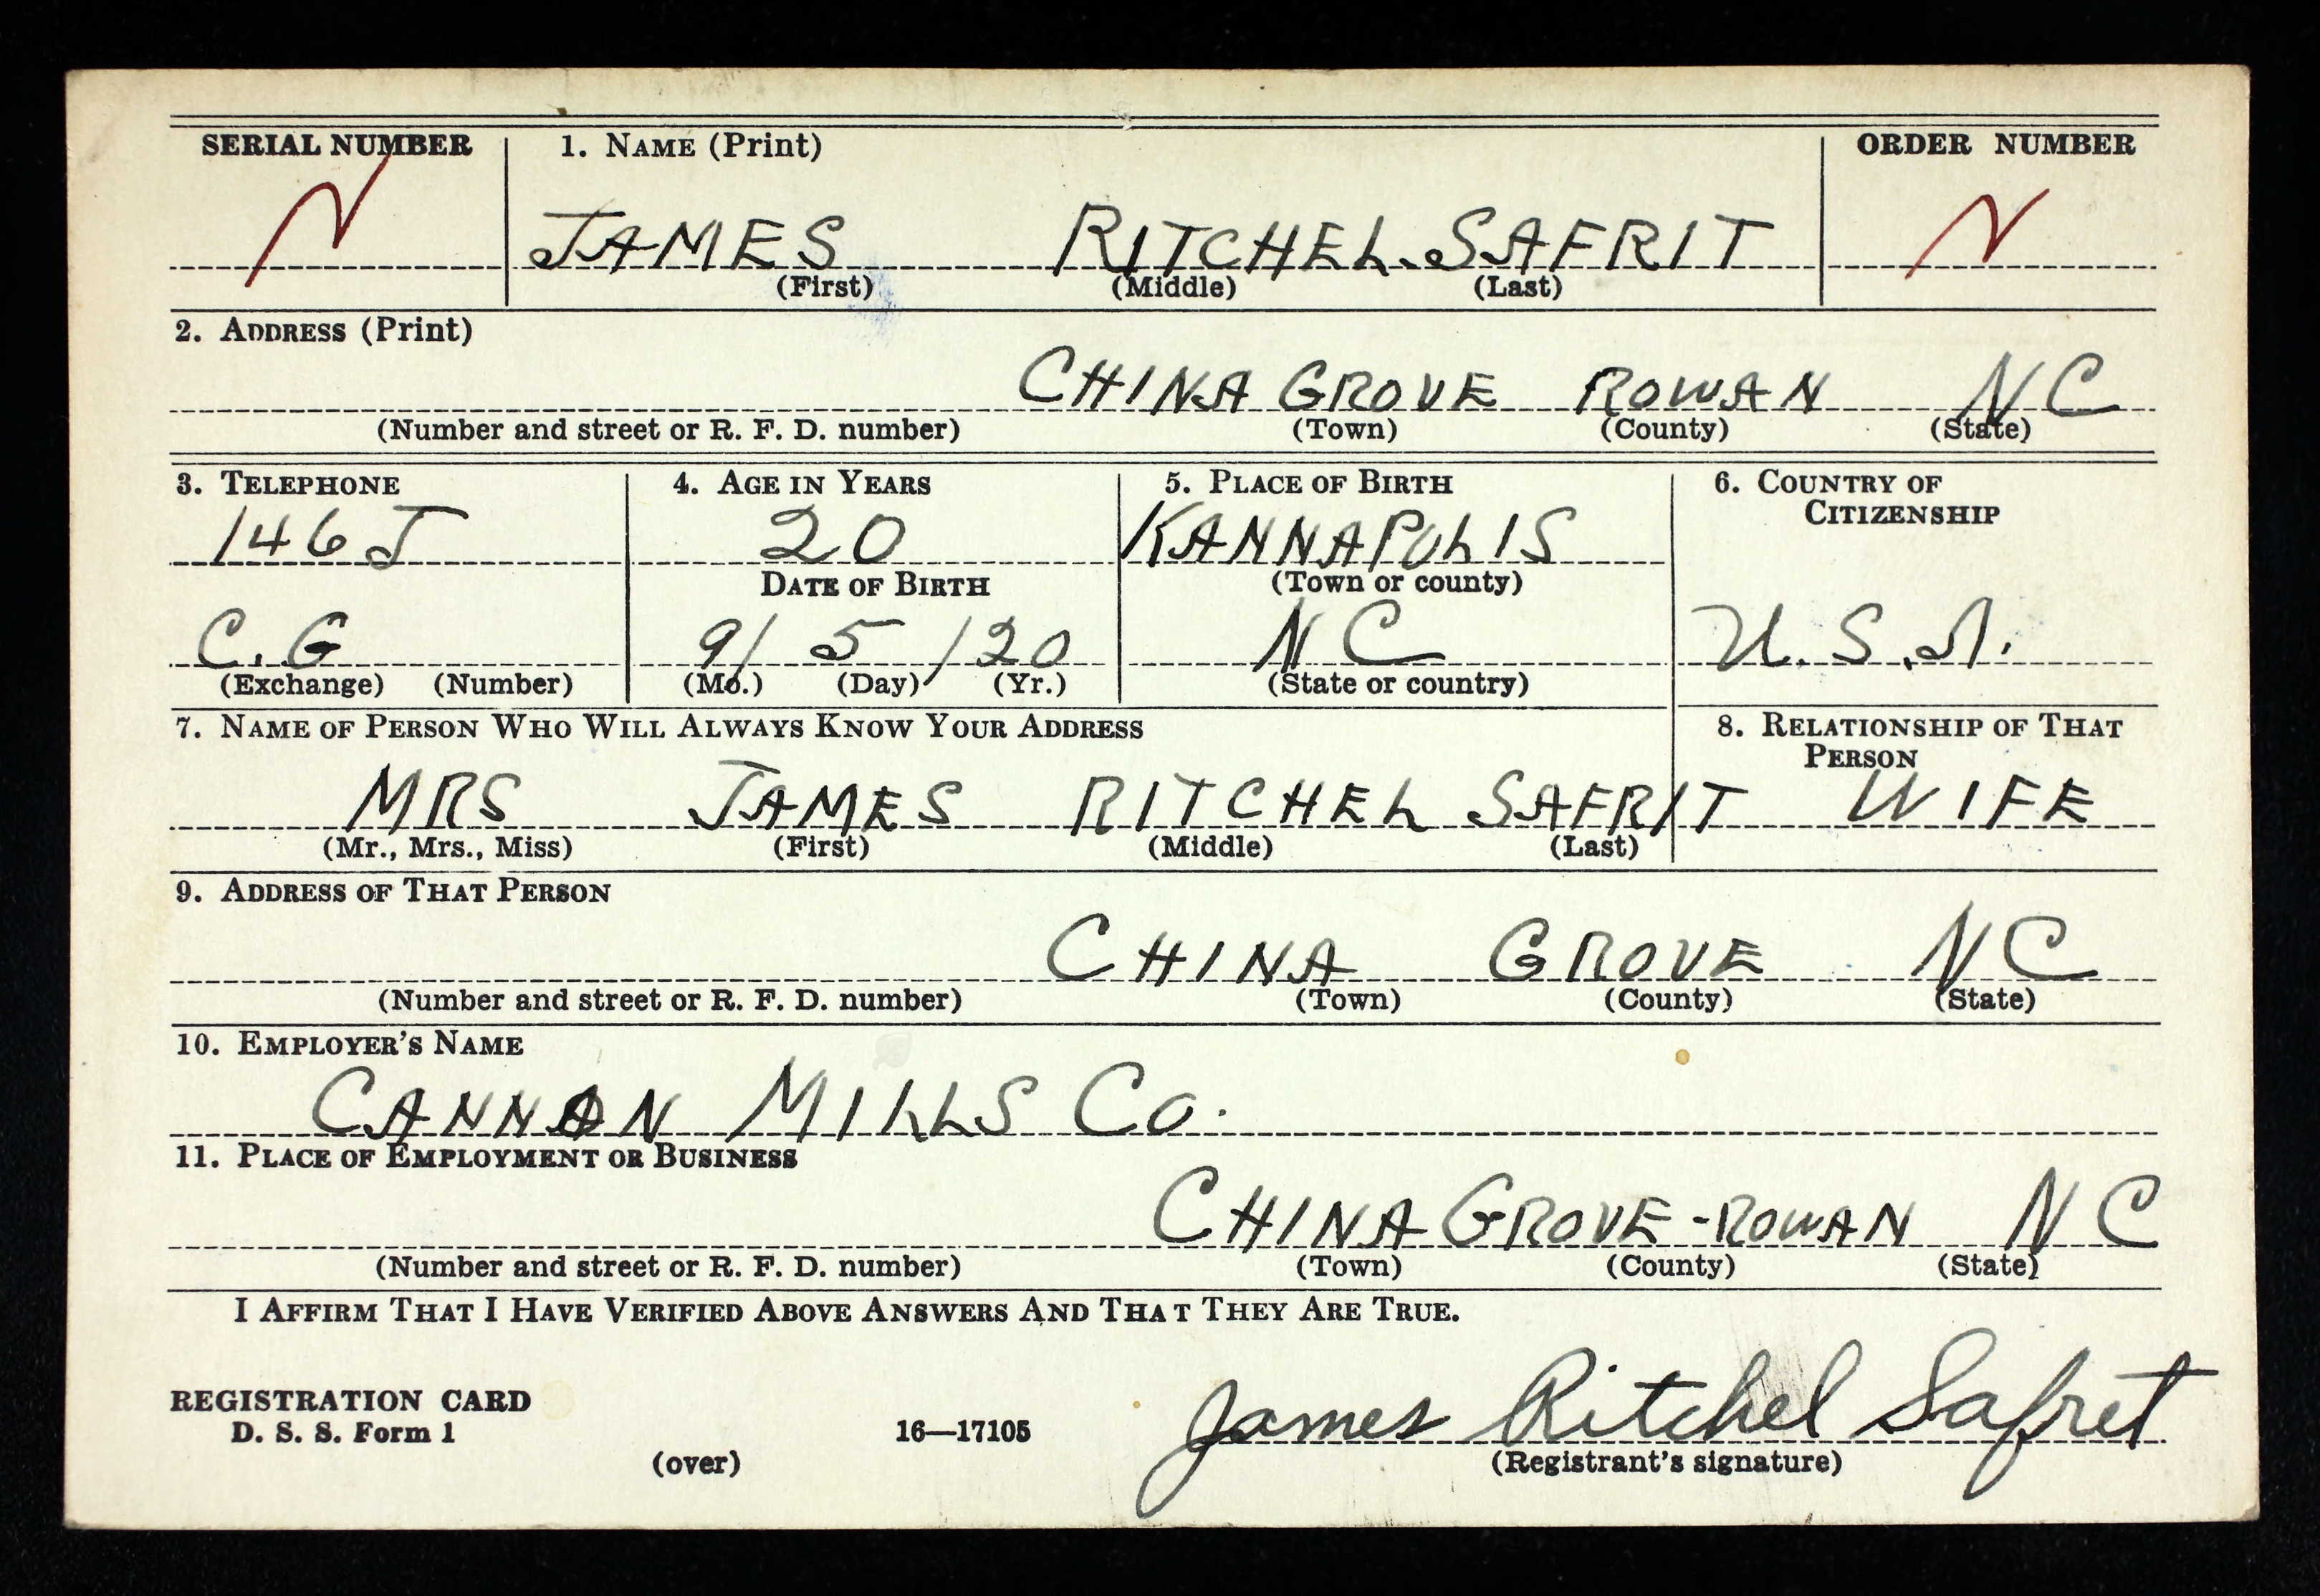 SERIAL NUMBER 1. NAME (Print) ORDER NUMBER
N JAMES RITCHEL SAFRIT N
(First) (Middle) (Last)
2. ADDRESS (Print)
CHINA GROVE ROWAN NC
(Number and street or R. F. D. number) (Town) (County) (State)
3. TELEPHONE 4. AGE IN YEARS 5. PLACE OF BIRTH 6. COUNTRY OF CITIZENSHIP
146J 20 KANNAPOLIS
DATE OF BIRTH (Town or county)
C.G 9/ 5 /20 NC U.S.A.
(Exchange) (Number) (Mo.) (Day) (Yr.) (State or country)
7. NAME OF PERSON WHO WILL ALWAYS KNOW YOUR ADDRESS 8. RELATIONSHIP OF THAT PERSON
MRS JAMES RITCHEL SAFRIT WIFE
(Mr., Mrs., Miss) (First) (Middle) (Last)
9. ADDRESS OF THAT PERSON
CHINA GROVE NC
(Number and street or R. F. D. number) (Town) (County) (State)
10. EMPLOYER'S NAME
CANNON MILLS Co.
11. PLACE OF EMPLOYMENT OR BUSINESS
CHINA GROVE - ROWAN NC
(Number and street or R. F. D. number) (Town) (County) (State)
I AFFIRM THAT I HAVE VERIFIED ABOVE ANSWERS AND THAT THEY ARE TRUE.
James Ritchel Safret
REGISTRATION CARD
D. S. S. Form 1 16—17105
(over) (Registrant's signature)